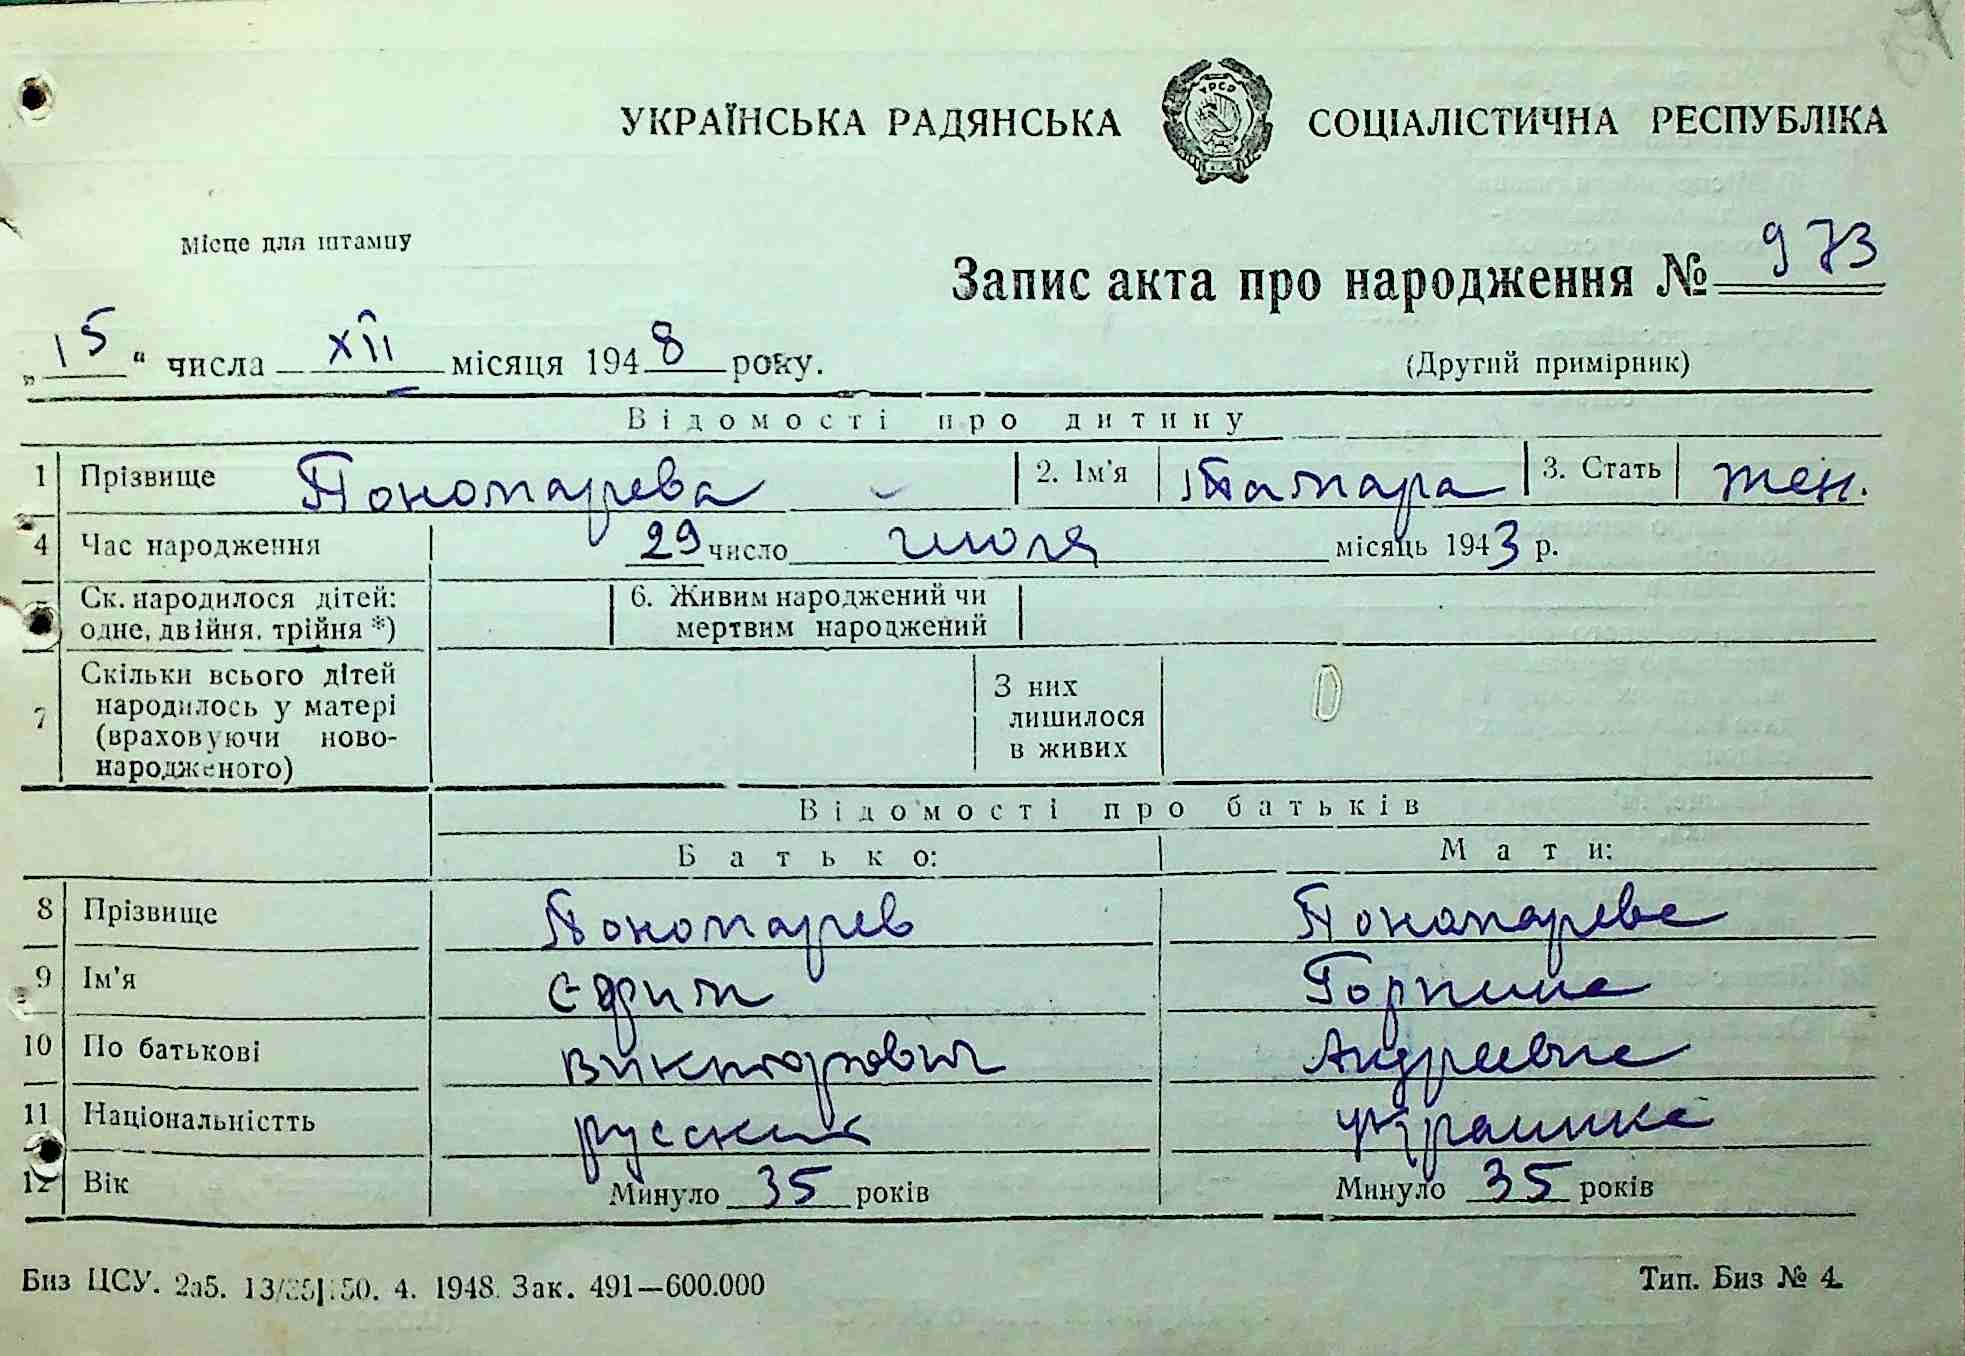 УКРАЇНСЬКА РАДЯНСЬКА СОЦІАЛІСТИЧНА РЕСПУБЛІКА
УРСР
Місце для штампу
Запис акта про народження № 973
„15“ числа XII місяця 1948 року.
(Другий примірник)
Відомості про дитину
1 Прізвище Пономарева 2. Ім'я Тамара 3. Стать жен.
4 Час народження 29 число июля місяць 1943 р.
Ск. народилося дітей: одне, двійня, трійня *)
6. Живим народжений чи мертвим народжений
7 Скільки всього дітей
народилось у матері
(враховуючи ново-
народженого)
З них
лишилося
в живих
Відомості про батьків
Батько: Мати:
8 Прізвище Пономарев Пономарева
9 Ім'я Ефим Горпина
10 По батькові Викторович Андреевна
11 Національністть русский украинка
12 Вік Минуло 35 років Минуло 35 років
Биз ЦСУ. 2а5. 4. 1948. Зак. 491—600.000
Тип. Биз № 4